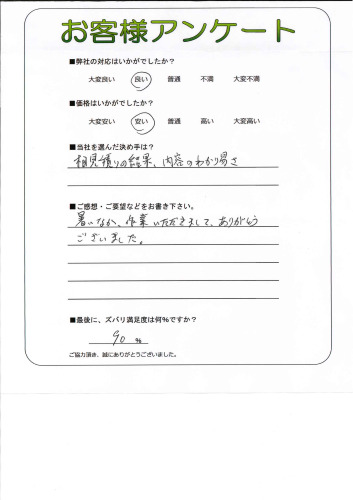 お客様アンケート
■弊社の対応はいかがでしたか?
大変良い 良い 普通 不満 大変不満
■価格はいかがでしたか?
大変安い 安い 普通 高い 大変高い
■当社を選んだ決め手は?
相見積りの結果、内容のわかり易さ
■ご感想・ご要望などをお書き下さい。
暑いなか、作業いただきまして、ありがとう
ございました。
■最後に、ズバリ満足度は何%ですか?
90 %
ご協力頂き、誠にありがとうございました。